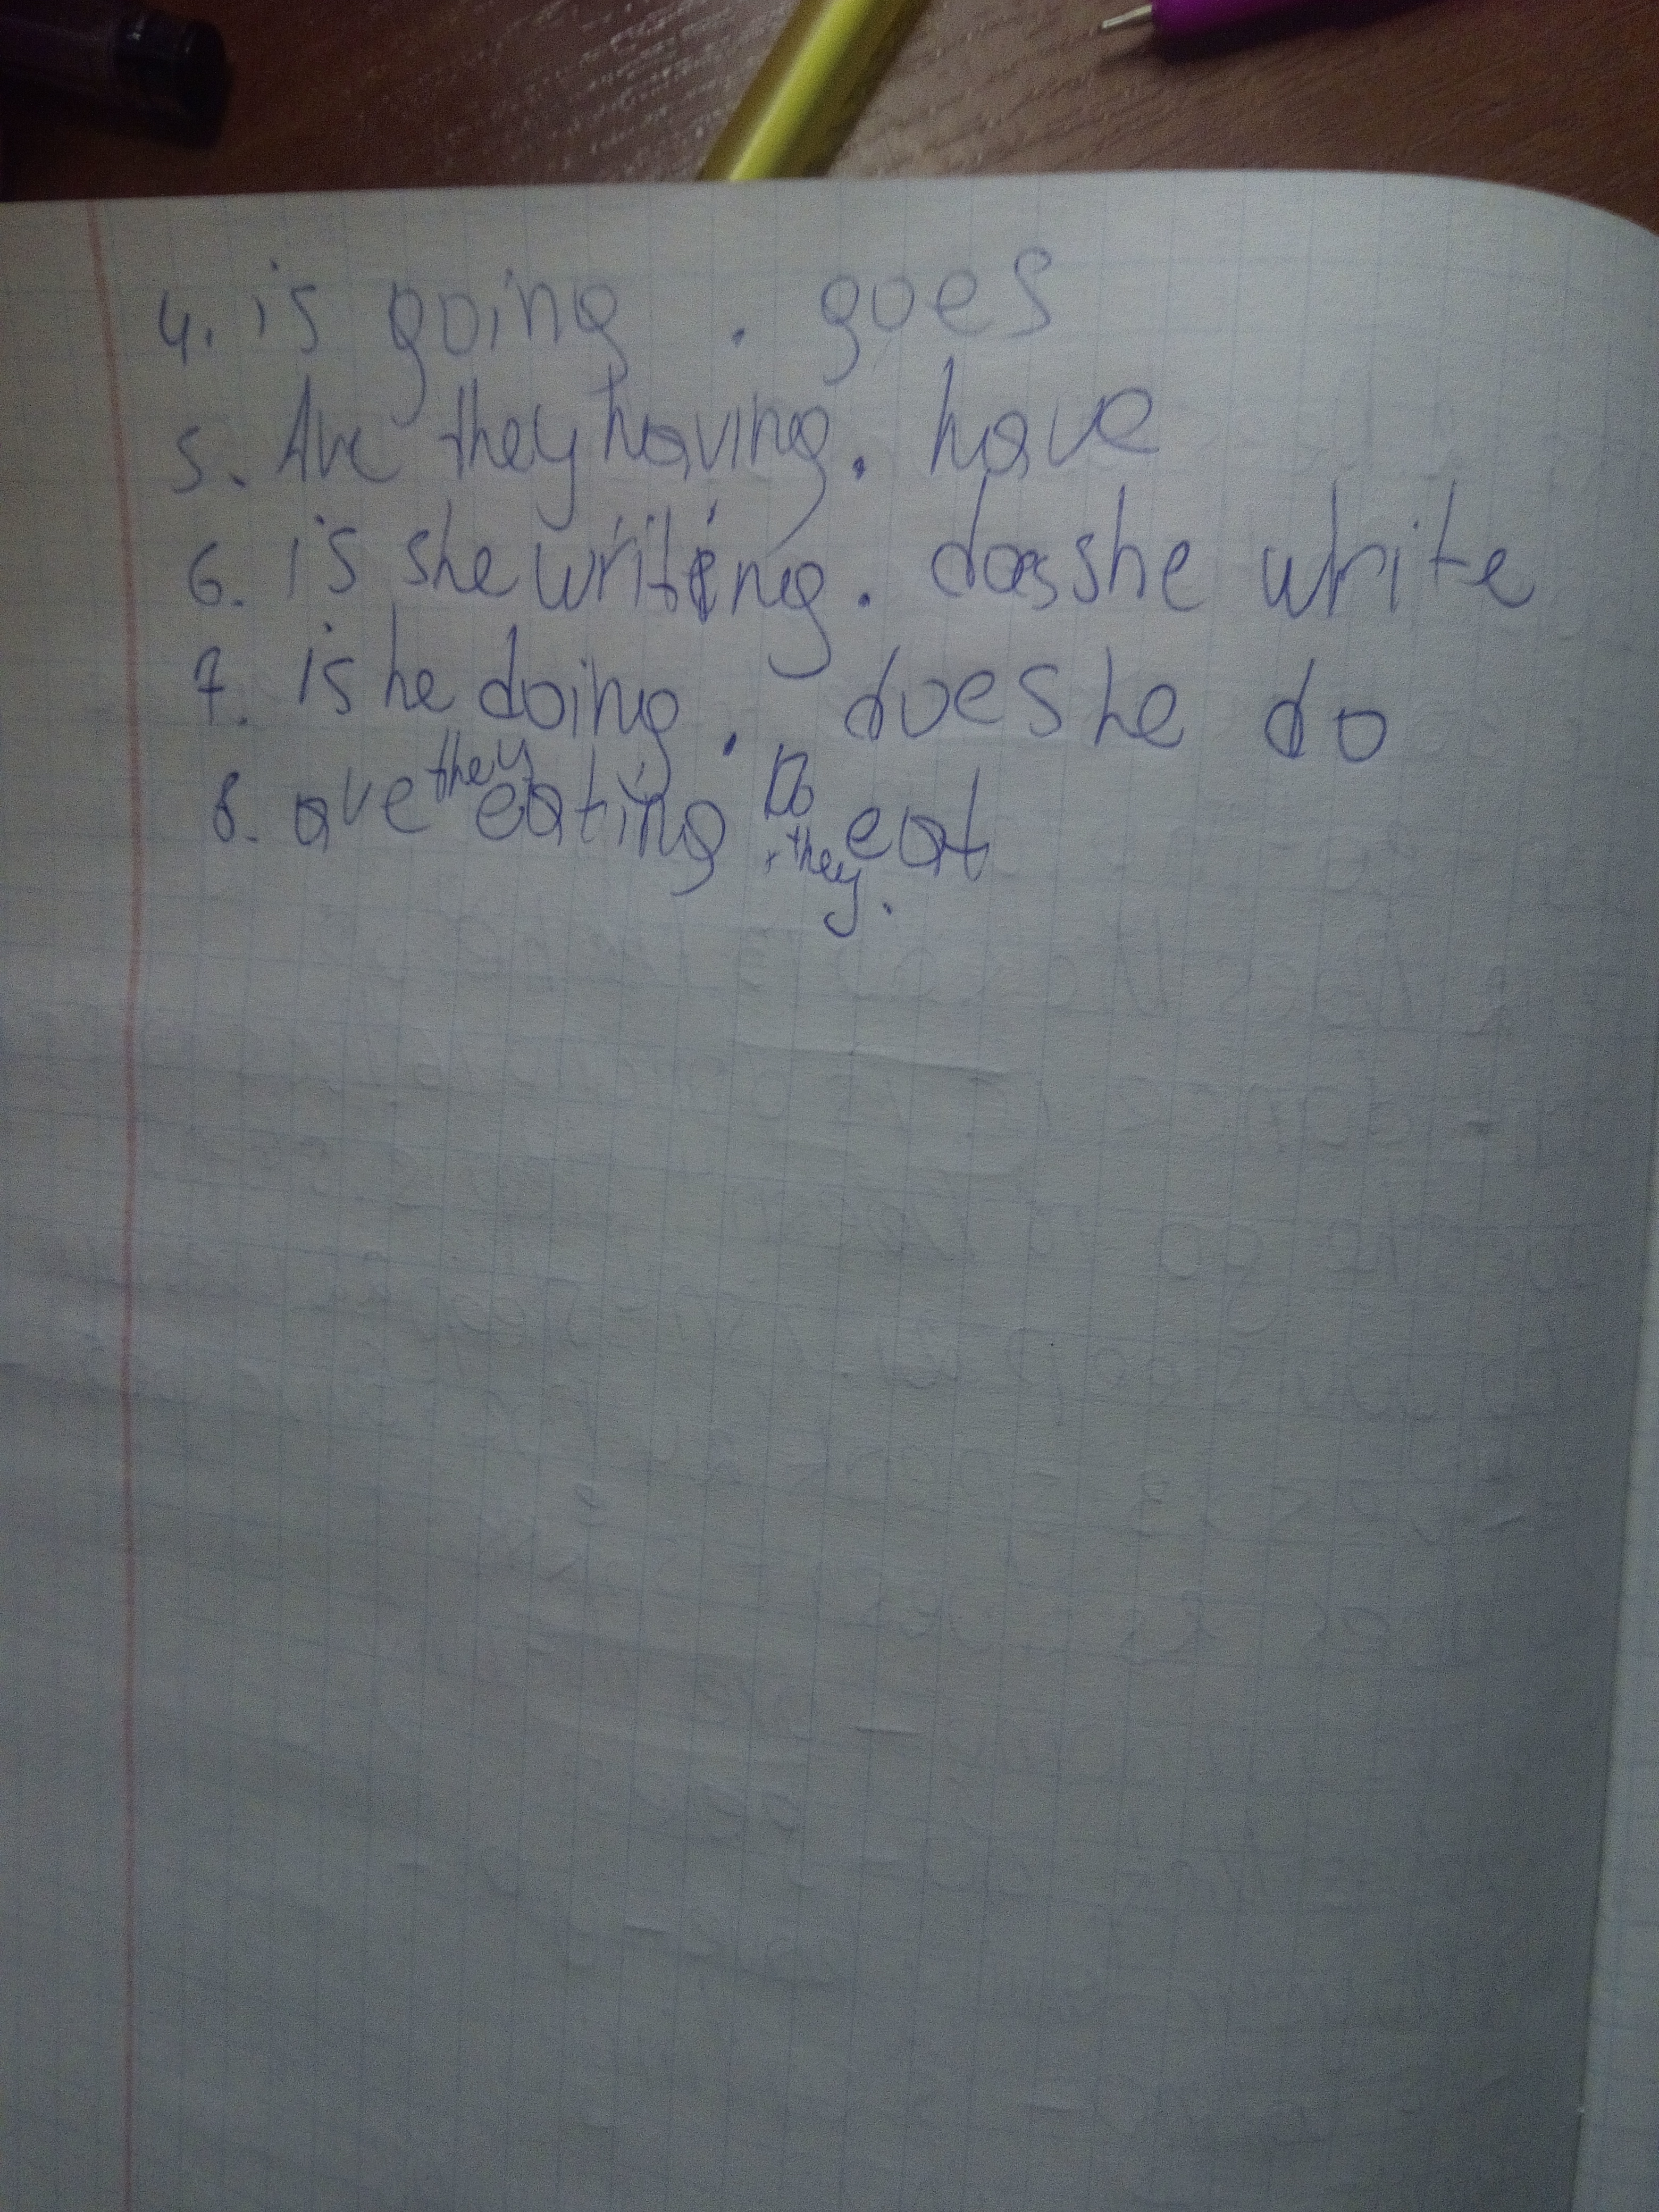 4. is going . goes
5. Are they having. have
6. is she writing. does she write
7. is he doing. does he do
8. are they eating. Do they eat.